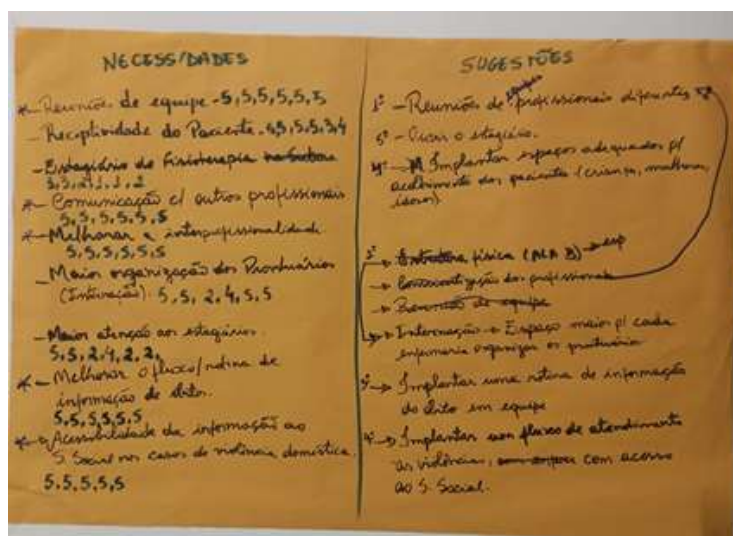 NECESSIDADES
* - Reunião de equipe - 5,5,5,5,5,5
- Receptividade do Paciente - 5,5,5,3,4
- Estagiário de Fisioterapia
* - Comunicação c/ outros profissionais
5.5.5.5.5.5
* - Melhorar a interprofissionalidade
5.5.5.5.5.5
- Maior organização dos Prontuários
(Internação). 5.5, 2.4, 5.5
- Maior atenção aos estagiários.
5.5.2.4.2.2.
* - Melhorar o fluxo/rotina de
informação de óbito.
5.5.5.5.5.5
* → Acessibilidade da informação ao
S. Social nos casos de violência doméstica.
5.5.5.5.5
SUGESTÕES
1º - Reuniões de equipes profissionais diferentes
5º - Ouvir o estagiário.
4º - Implantar espaços adequados p/
acolhimento dos pacientes (criança, mulheres,
idosos)
2º → Estrutura física (ALA B) → esp
→ Conscientização dos profissionais
→ Reunião de equipe
→ Internação → Espaço maior p/ cada
enfermaria organizar os prontuários
3º → Implantar uma rotina de informação
do óbito em equipe
4º → Implantar um fluxo de atendimento
as violências, com acesso
ao S. Social.